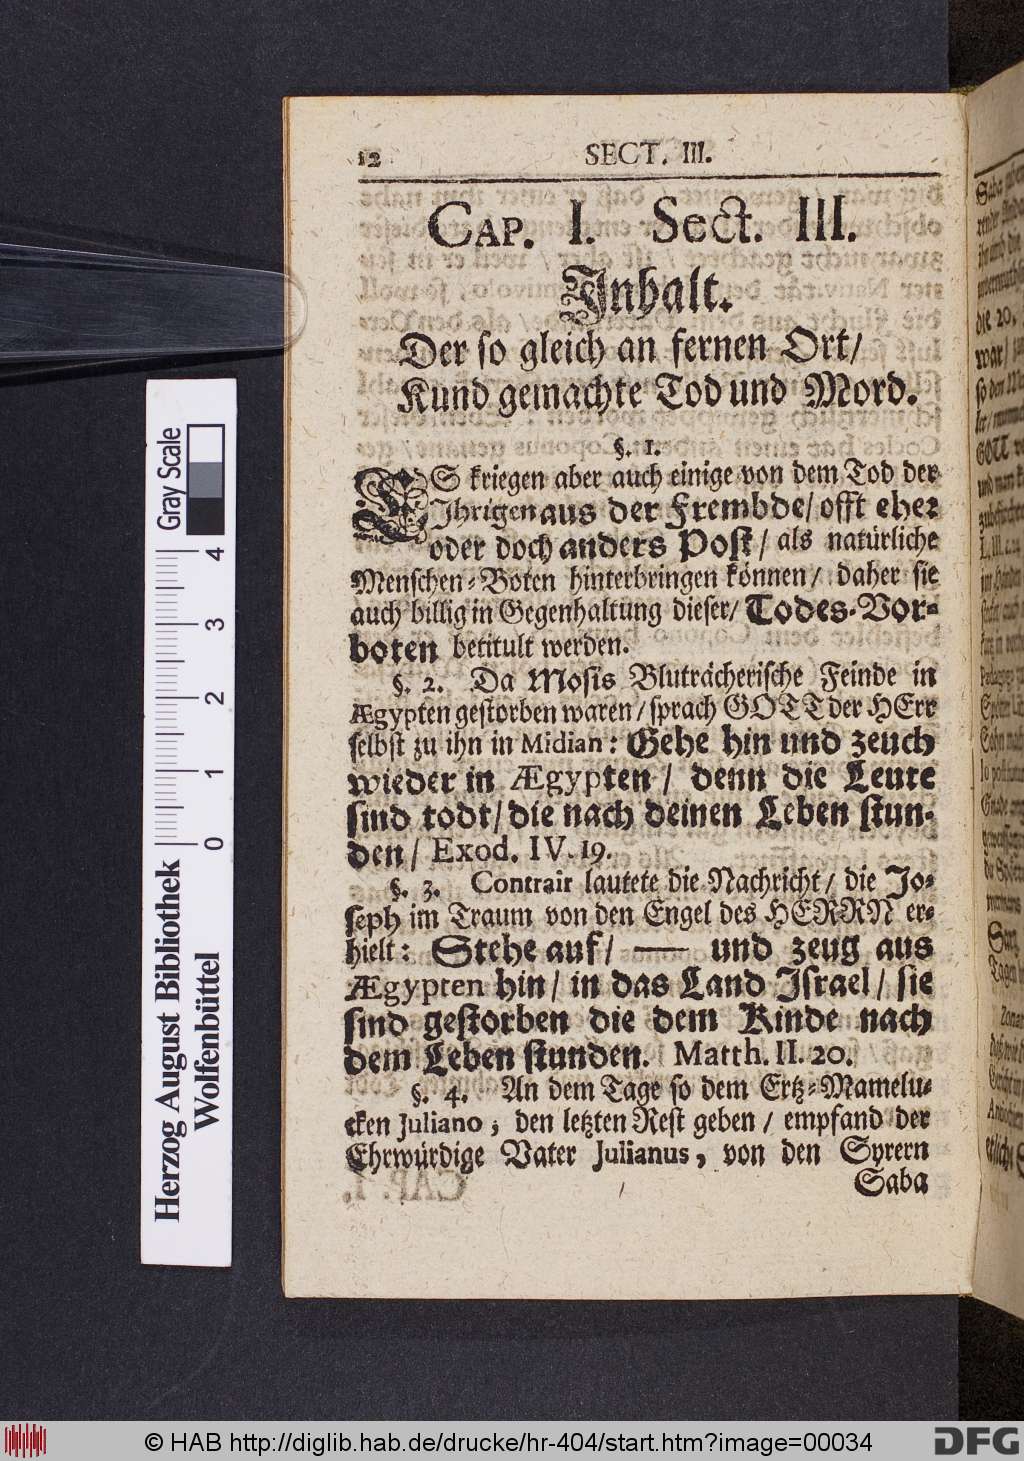 12 SECT. III.
CAP. I. Sect. III.
Inhalt.
Der so gleich an fernen Ort/
Kund gemachte Tod und Mord.
§. 1.
ES kriegen aber auch einige von dem Tod der
Ihrigen aus der Frembde/ offt eher
oder doch anders Post/ als natürliche
Menschen-Boten hinterbringen können/ daher sie
auch billig in Gegenhaltung dieser/ Todes-Vor-
boten betitult werden.
§. 2. Da Mosis Bluträcherische Feinde in
Ægypten gestorben waren/ sprach GOTT der HErr
selbst zu ihn in Midian: Gehe hin und zeuch
wieder in Ægypten/ denn die Leute
sind todt/ die nach deinen Leben stun-
den/ Exod. IV. 19.
§. 3. Contrair lautete die Nachricht/ die Jo-
seph im Traum von den Engel des HERRN er-
hielt: Stehe auf/ — und zeug aus
Ægypten hin/ in das Land Israel/ sie
sind gestorben die dem Kinde nach
dem Leben stunden. Matth. II. 20.
§. 4. An dem Tage so dem Ertz-Mamelu-
cken Juliano, den letzten Rest geben/ empfand der
Ehrwürdige Vater Julianus, von den Syrern
Saba
Gray Scale
0 1 2 3 4
Herzog August Bibliothek
Wolfenbüttel
© HAB http://diglib.hab.de/drucke/hr-404/start.htm?image=00034
DFG